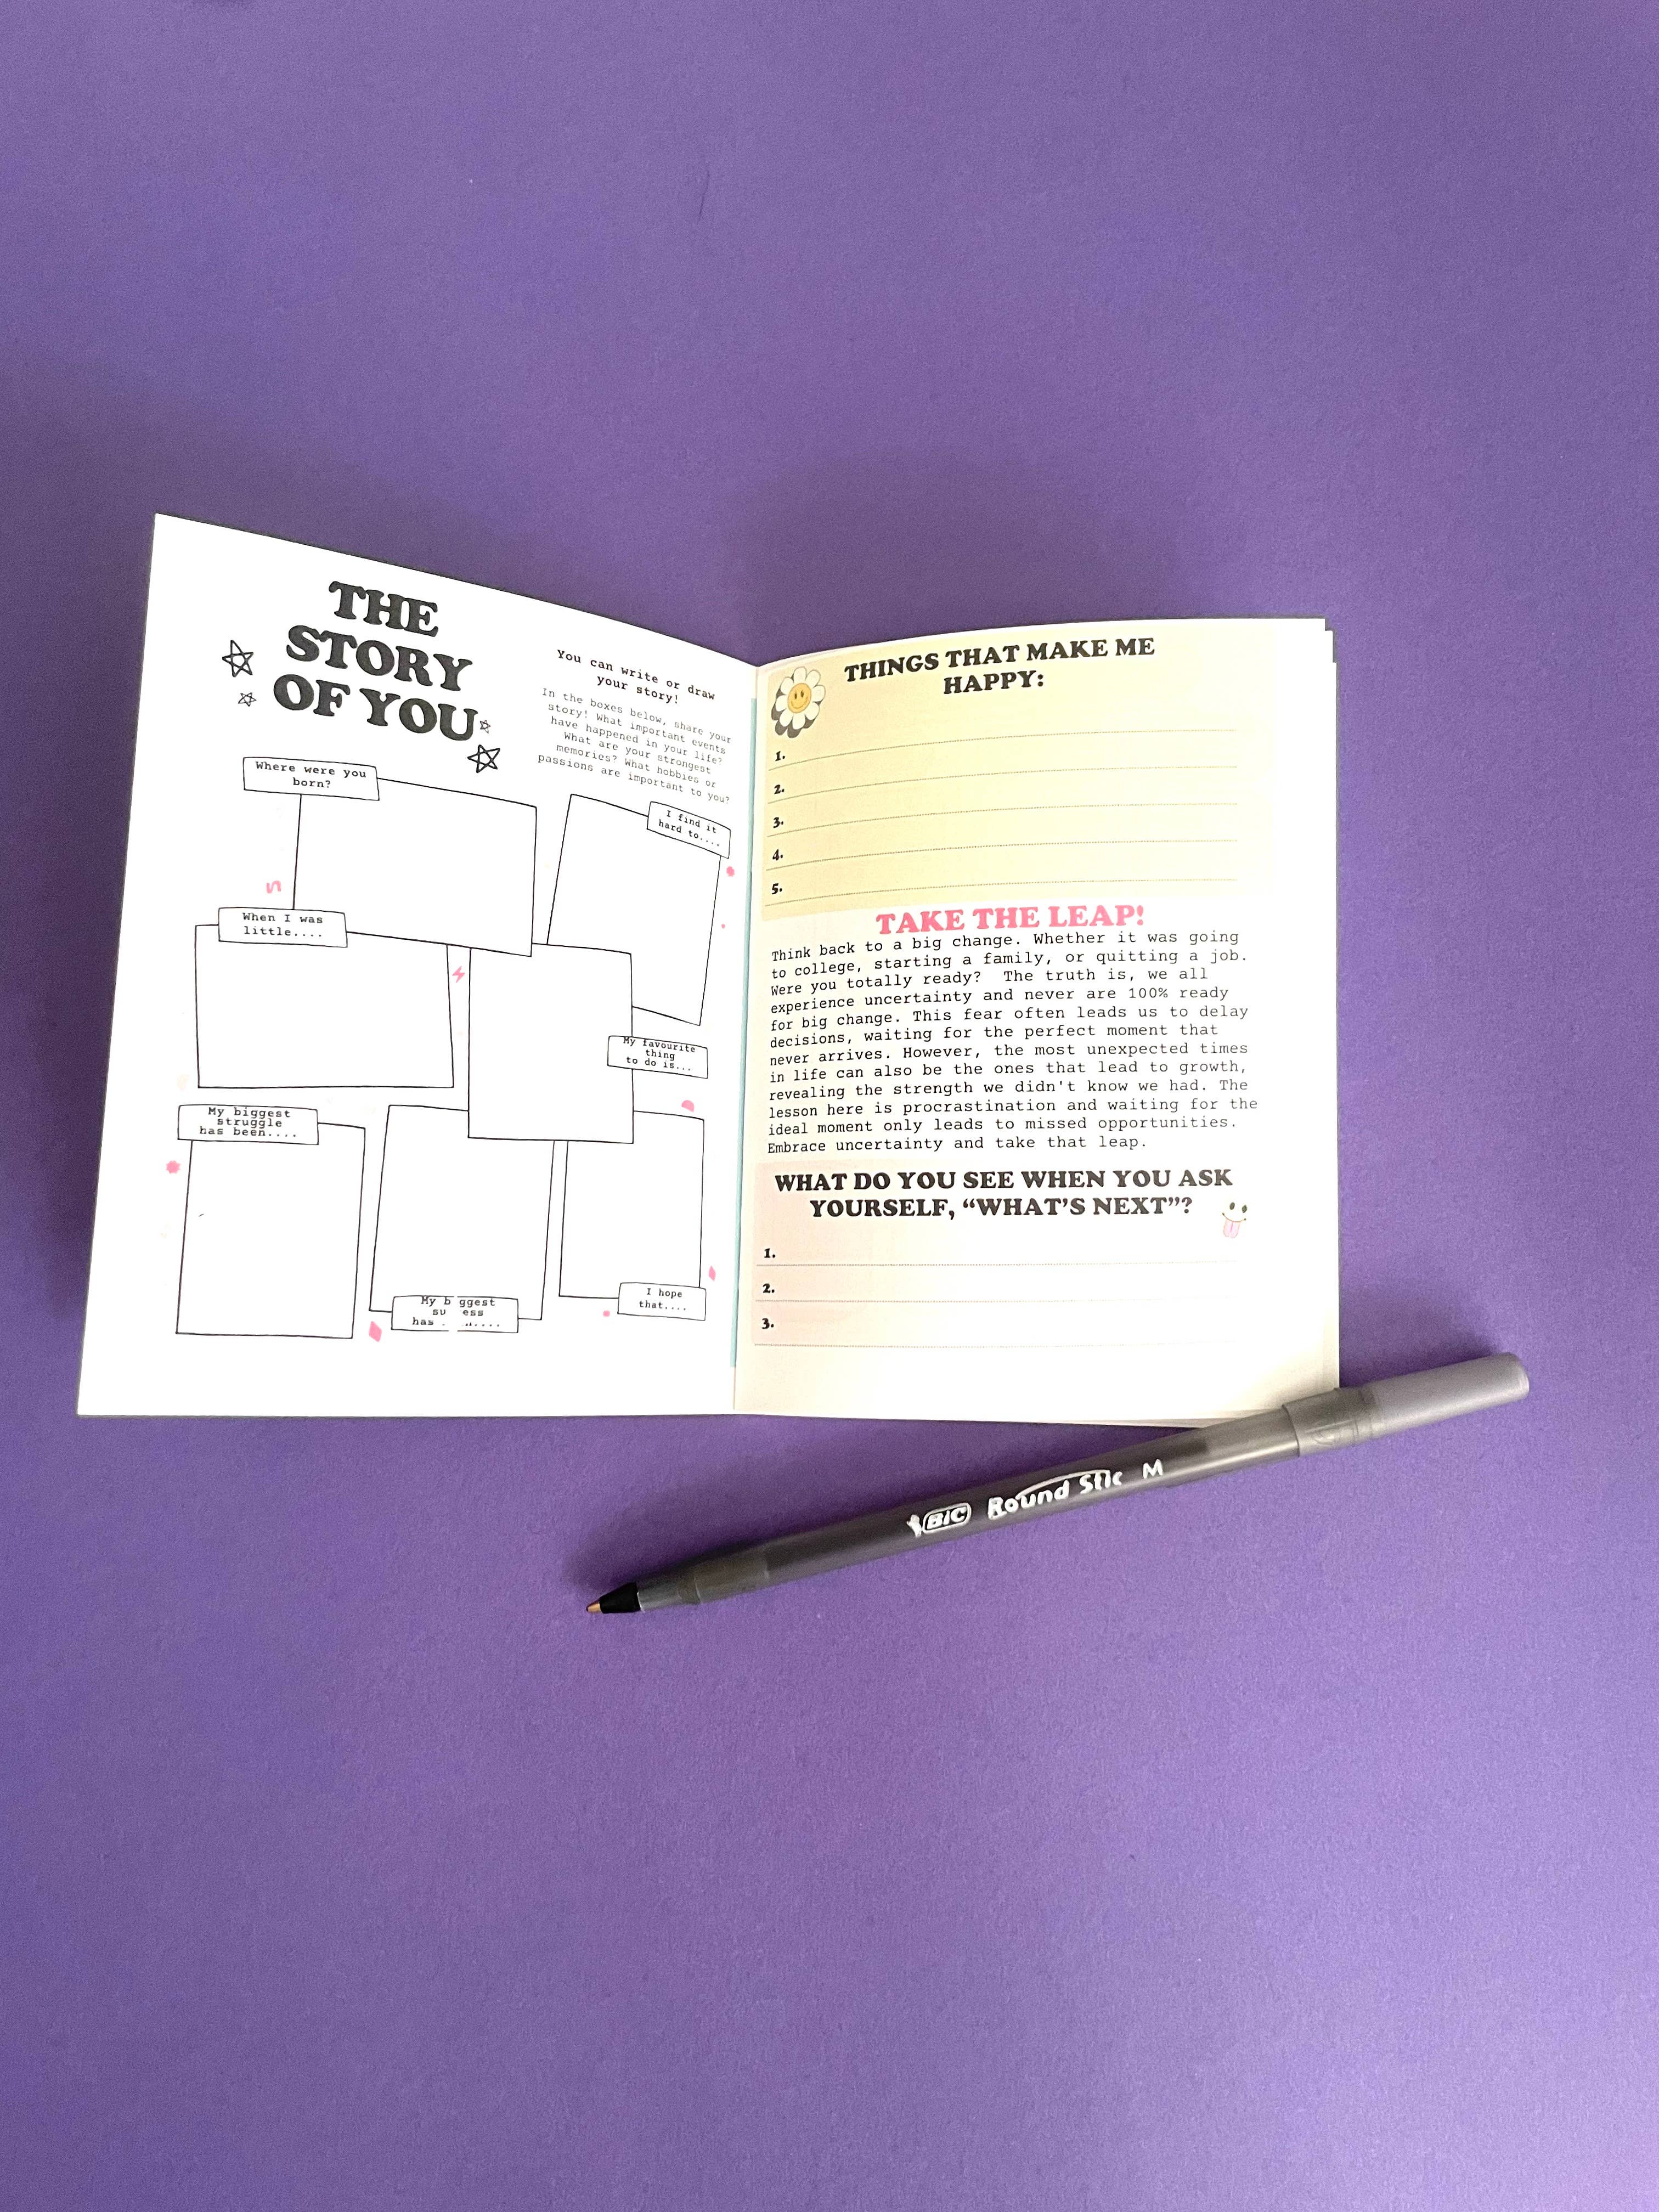 THE
STORY
OF YOU
You can write or draw
your story!
In the boxes below, share your
story! What important events
have happened in your life?
What are your strongest
memories? What hobbies or
passions are important to you?
Where were you
born?
I find it
hard to....
When I was
little....
My favourite
thing
to do is...
My biggest
struggle
has been....
My b ggest
su ess
has
I hope
that....
THINGS THAT MAKE ME
HAPPY:
1.
2.
3.
4.
5.
TAKE THE LEAP!
Think back to a big change. Whether it was going
to college, starting a family, or quitting a job.
Were you totally ready? The truth is, we all
experience uncertainty and never are 100% ready
for big change. This fear often leads us to delay
decisions, waiting for the perfect moment that
never arrives. However, the most unexpected times
in life can also be the ones that lead to growth,
revealing the strength we didn't know we had. The
lesson here is procrastination and waiting for the
ideal moment only leads to missed opportunities.
Embrace uncertainty and take that leap.
WHAT DO YOU SEE WHEN YOU ASK
YOURSELF, “WHAT'S NEXT”?
1.
2.
3.
BIC Round Stic M